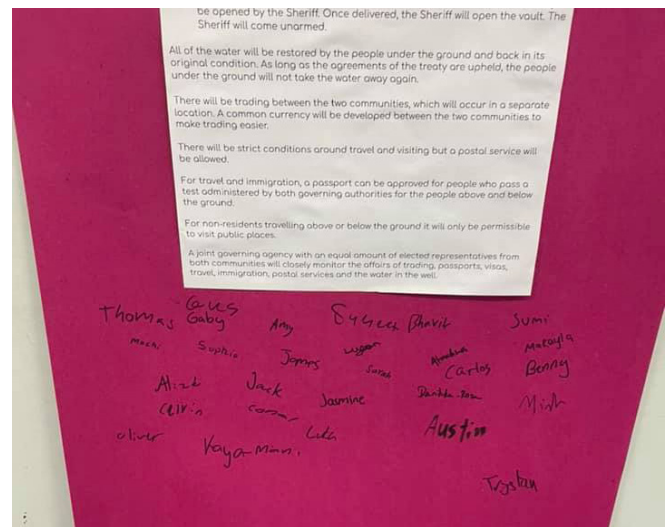 be opened by the Sheriff. Once delivered, the Sheriff will open the vault. The
Sheriff will come unarmed.
All of the water will be restored by the people under the ground and back in its
original condition. As long as the agreements of the treaty are upheld, the people
under the ground will not take the water away again.
There will be trading between the two communities, which will occur in a separate
location. A common currency will be developed between the two communities to
make trading easier.
There will be strict conditions around travel and visiting but a postal service will
be allowed.
For travel and immigration, a passport can be approved for people who pass a
test administered by both governing authorities for the people above and below
the ground.
For non-residents travelling above or below the ground it will only be permissible
to visit public places.
A joint governing agency with an equal amount of elected representatives from
both communities will closely monitor the affairs of trading, passports, visas,
travel, immigration, postal services and the water in the well.
Thomas Gaby Amy Bhavit Sumi
Sophie James Sarah Carlos Makayla
Benny
Jack Jasmine Minh
Oliver Kaya Luka Austin
Trystan